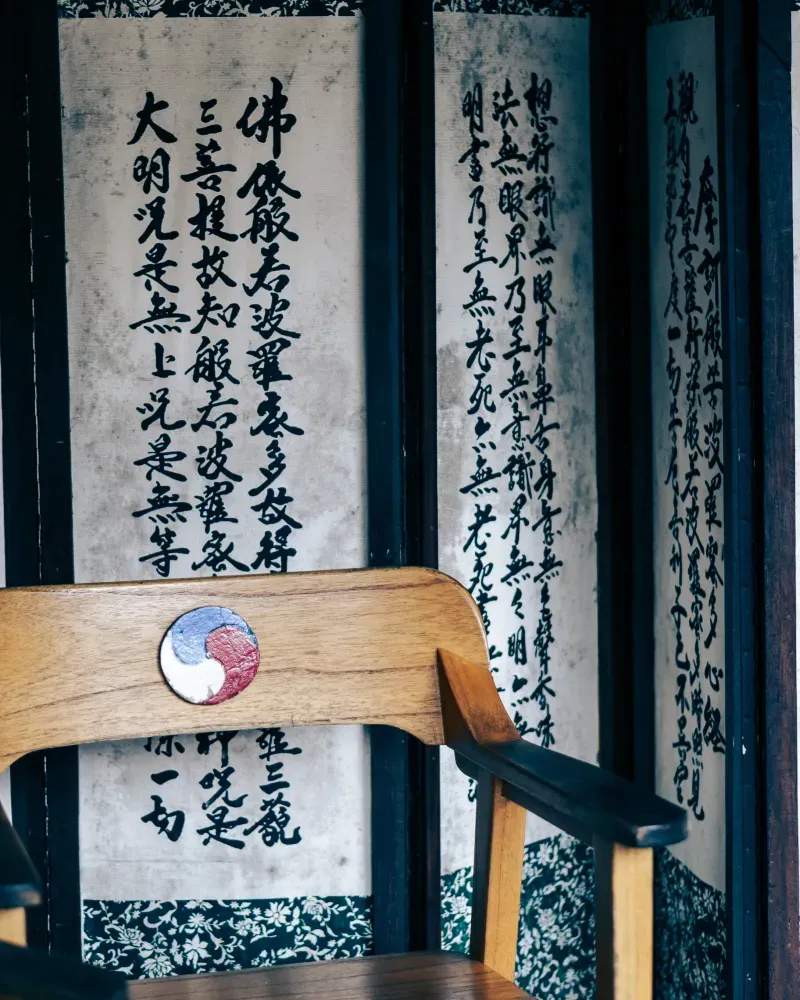 摩訶般若波羅蜜多心経
觀自在菩薩行深般若波羅蜜多時照見
五蘊皆空度一切苦厄舍利子色不異空
想行識無眼耳鼻舌身意無色聲香味
法無眼界乃至無意識界無々明亦無
明盡乃至無老死亦無老死盡
佛依般若波羅蜜多故得
羅三藐
三菩提故知般若波羅蜜
神呪是
大明呪是無上呪是無等
除一切